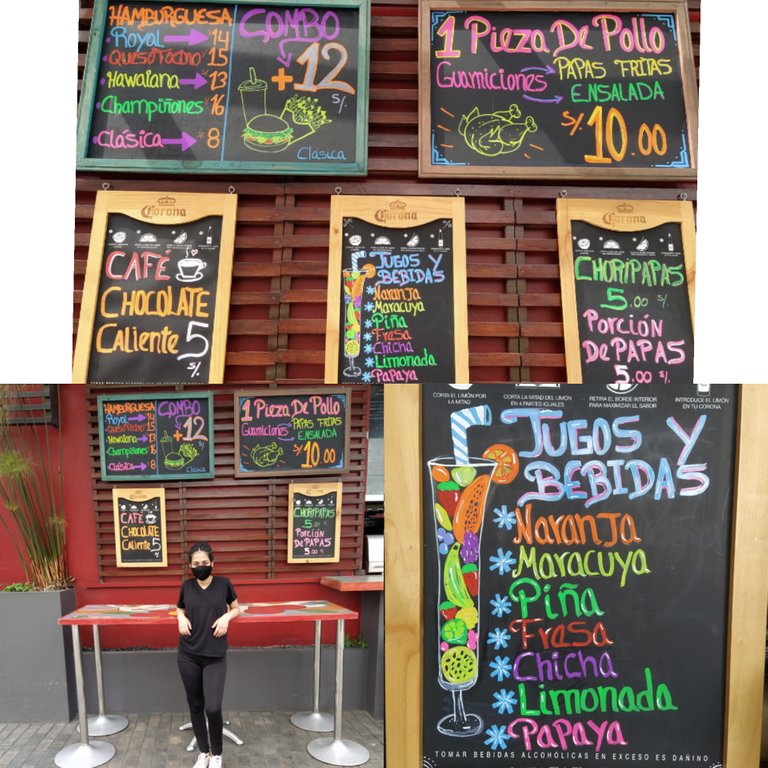 HAMBURGUESA
Royal 14
Queso Tocino 15
Hawaiana 13
Champiñones 16
Clásica 8
COMBO
+12
S/.
Clasica
1 Pieza De Pollo
Guarniciones PAPAS FRITAS
ENSALADA
S/. 10.00
Corona
CAFÉ
CHOCOLATE
Caliente 5
S/.
Corona
JUGOS Y
BEBIDAS
Naranja
Maracuya
Piña
Fresa
Chicha
Limonada
Papaya
Corona
CHORIPAPAS
5.00 S/.
Porción
De PAPAS
5.00 S/.
HAMBURGUESA
Royal 14
Queso Tocino 15
Hawaiana 13
Champiñones 16
Clásica 8
COMBO
+12
Clasica
1 Pieza De Pollo
Guarniciones PAPAS FRITAS
ENSALADA
S/ 10.00
CAFÉ
CHOCOLATE
Caliente 5
CHORIPAPAS
5.00
Porción
De PAPAS
5.00
CORTA EL LIMÓN POR
LA MITAD
CORTA LA MITAD DEL LIMÓN
EN 4 PARTES IGUALES
RETIRA EL BORDE INTERIOR
PARA MAXIMIZAR EL SABOR
INTRODUCE EL LIMÓN
EN TU CORONA
JUGOS Y
BEBIDAS
Naranja
Maracuya
Piña
Fresa
Chicha
Limonada
Papaya
TOMAR BEBIDAS ALCOHÓLICAS EN EXCESO ES DAÑINO